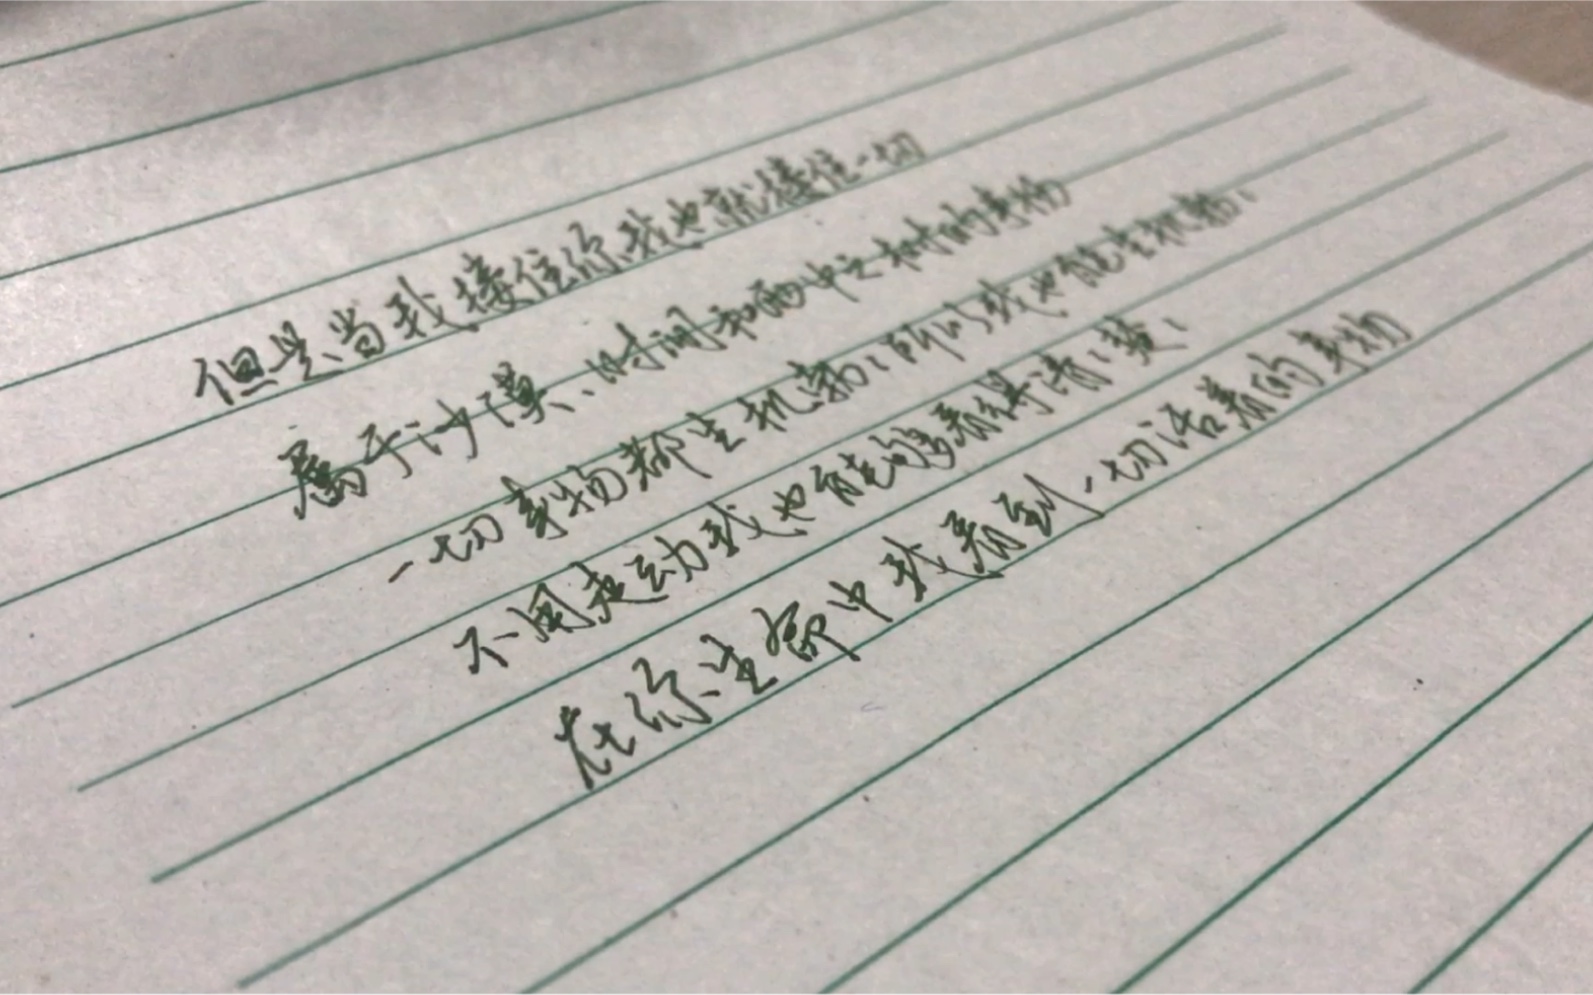 但是当我搂住你我也就搂住一切
属于沙漠、时间和雨中之树的事物
一切事物都生机勃勃所以我也能生机勃勃
不用走动我也能够看得清清楚楚
在你生命中我看到一切活着的事物